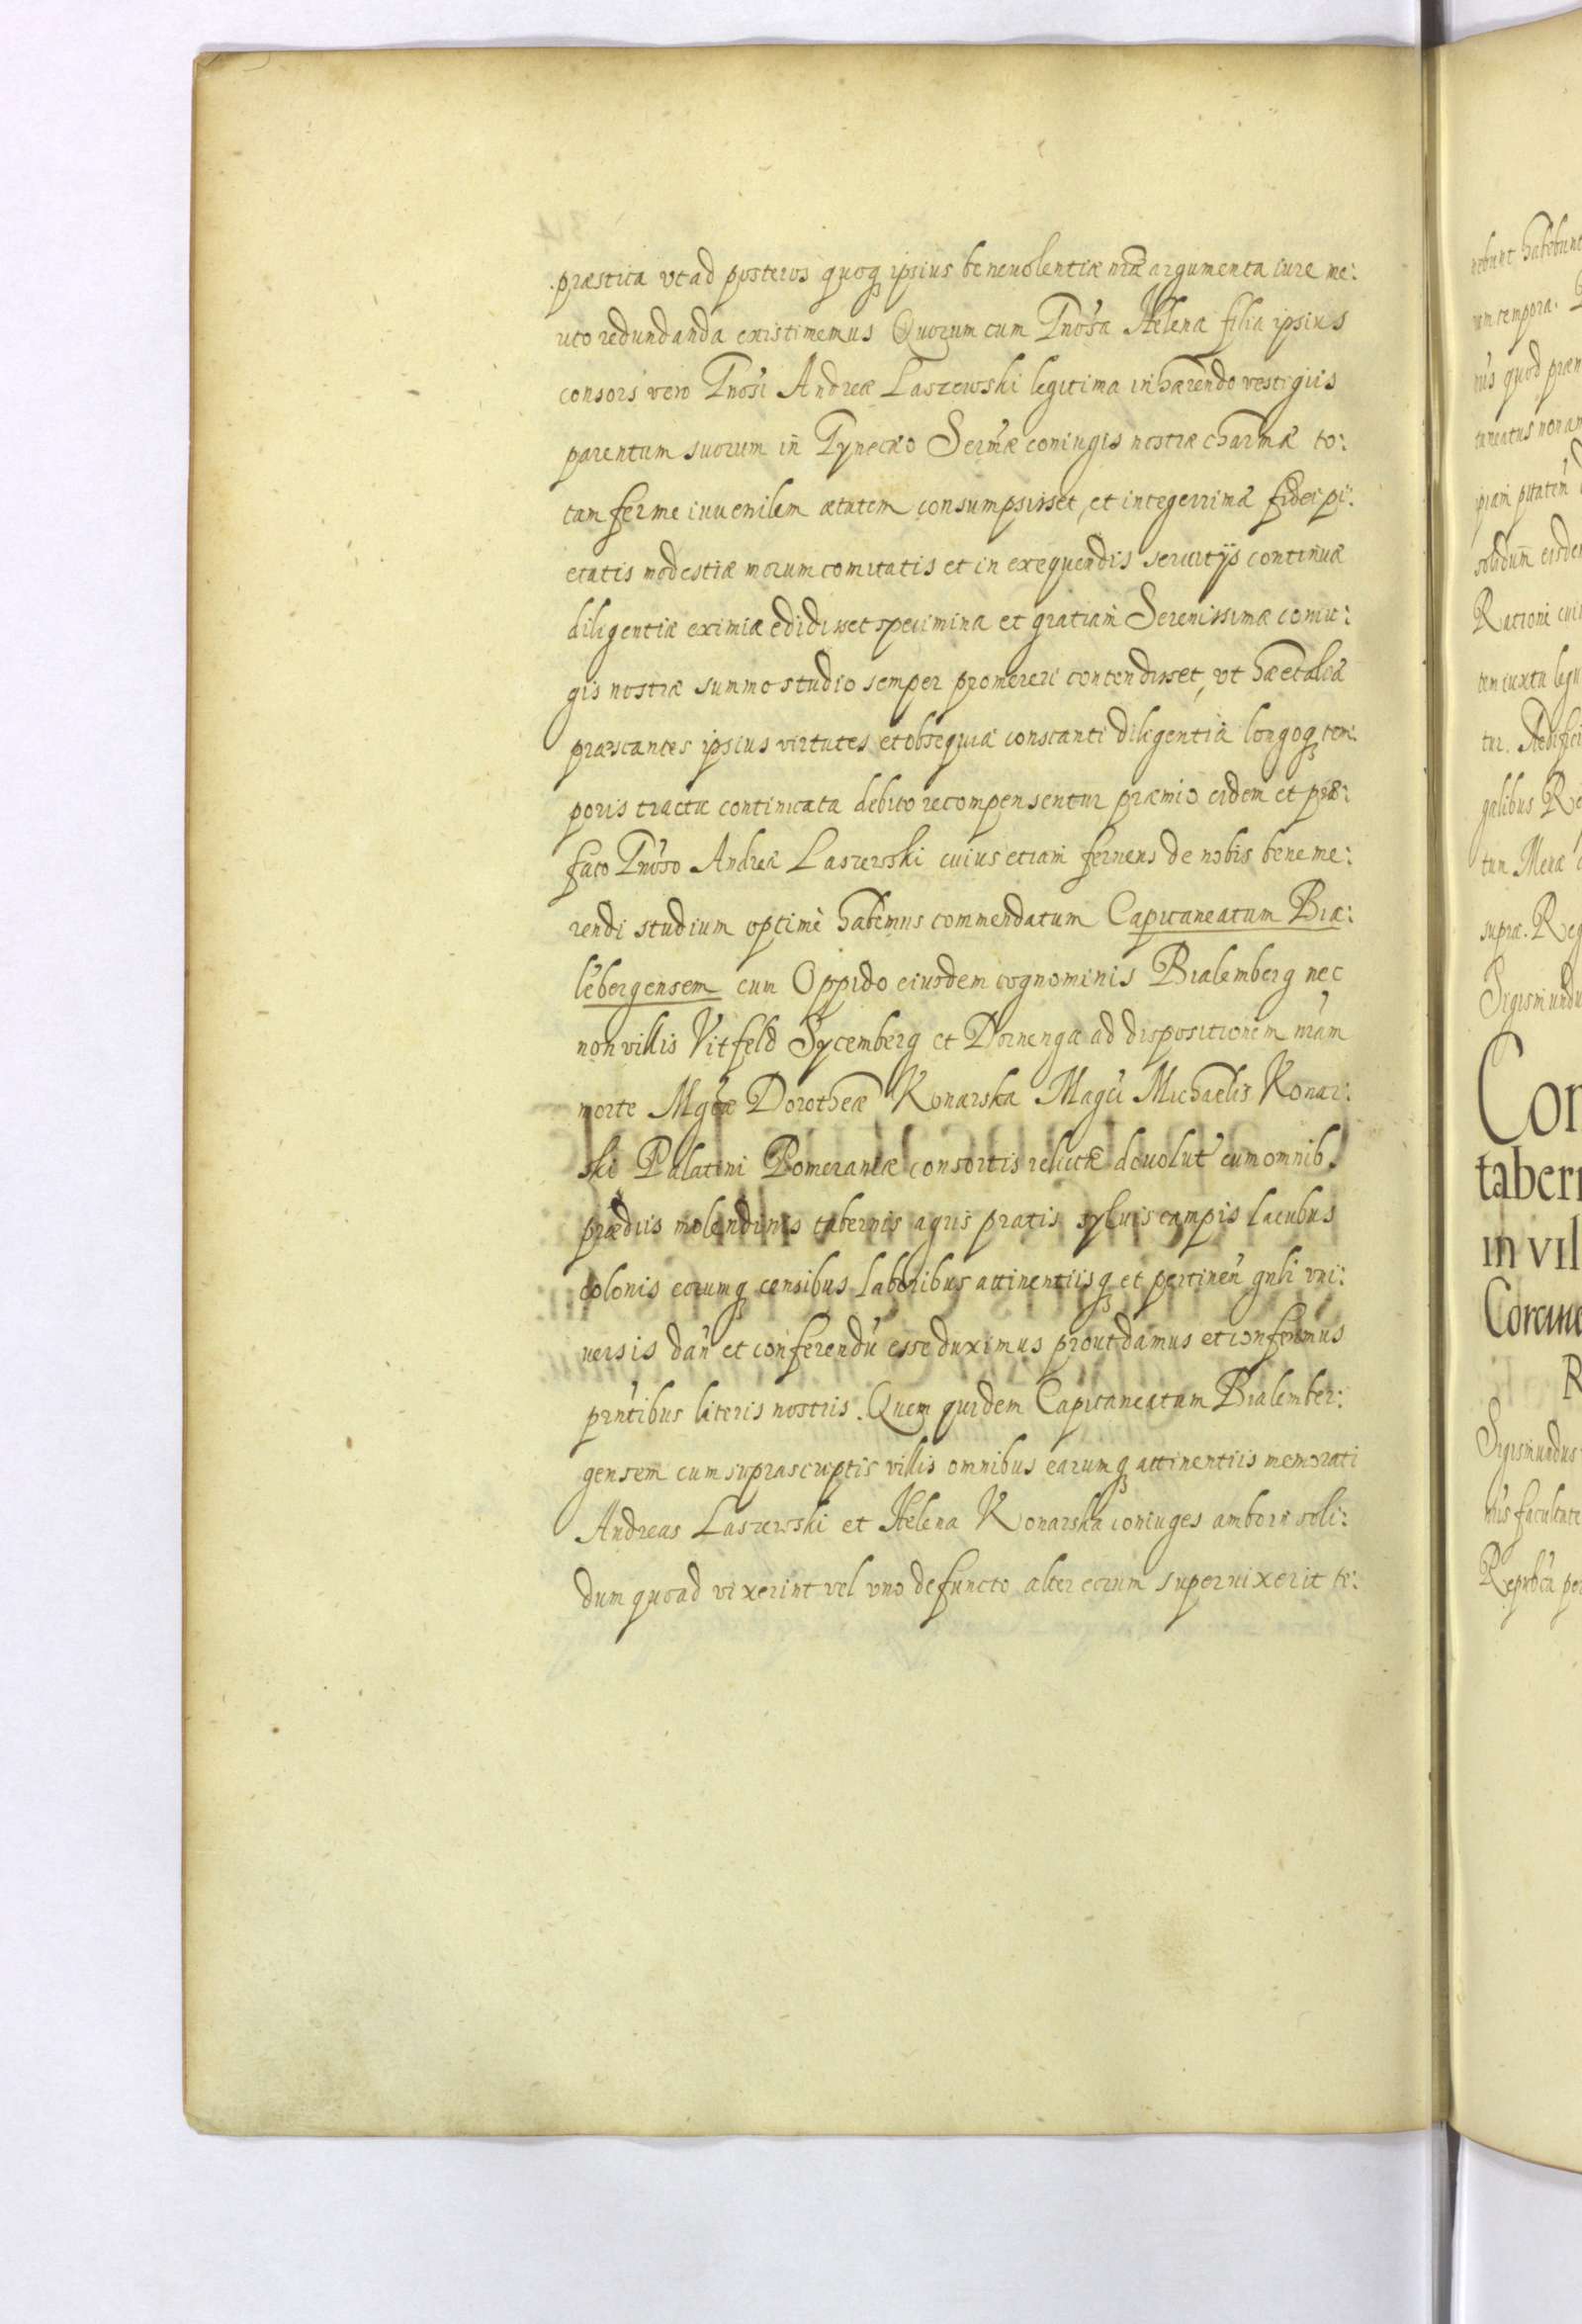 præstita vt ad posteros quoq ipsius beneuolentiæ nræ argumenta iure me:
rito redundanda existimemus Quorum cum Gnosa Helena filia ipsius
consors vero Gnosi Andreæ Laszewski legitima inhærendo vestigiis
parentum suorum in Gynecæo Sermæ coniugis nostræ charmæ to:
tam ferme iuuenilem ætatem consumpsisset, et integerrimæ fidei pi:
etatis modestiæ morum comitatis et in exequendis seruitijs continuæ
diligentiæ eximia edidisset specimina et gratiam Serenissimæ coniu:
gis nostræ summo studio semper promereri contendisset, vt hæ et aliæ
præstantes ipsius virtutes et obsequia constanti diligentia longoq tem:
poris tractu continuata debito recompensentur præmio eidem et præ:
fato Gnoso Andreæ Laszewski cuius etiam feruens de nobis beneme:
rendi studium optime habemus commendatum Capitaneatum Bia:
lebergensem cum Oppido eiusdem cognominis Bialemberg nec
non villis Vitfeld Sycemberg et Dornenga ad dispositionem nram
morte Mgcæ Dorotheæ Konarska Magci Michaelis Konar:
ski Palatini Pomeraniæ consortis relictæ deuolut cum omnib.
prædiis molendinis tabernis agris pratis syluis campis lacubus
colonis eorumq censibus laboribus attinentiisq et pertinen gnli vni:
uersis dan et conferendu esse duximus prout damus et conferimus
pnntibus literis nostris. Quem quidem Capitaneatum Bialember:
gensem cum suprascriptis villis omnibus earumq attinentiis memorati
Andreas Laszewski et Helena Konarska coniuges ambo in soli:
dum quoad vixerint vel vno defuncto alter eorum superuixerit te:
nebunt habebunt
rum tempora.
nis quod præm
taneatus non am
piam pttatem
solidum eisdem
Rationi
tem iuxta
tur. Aedifici
galibus Re
tum Mena
supra. Reg
Sigismundu
Con
tabern
in vil
R
Sigismundus
nis facultate